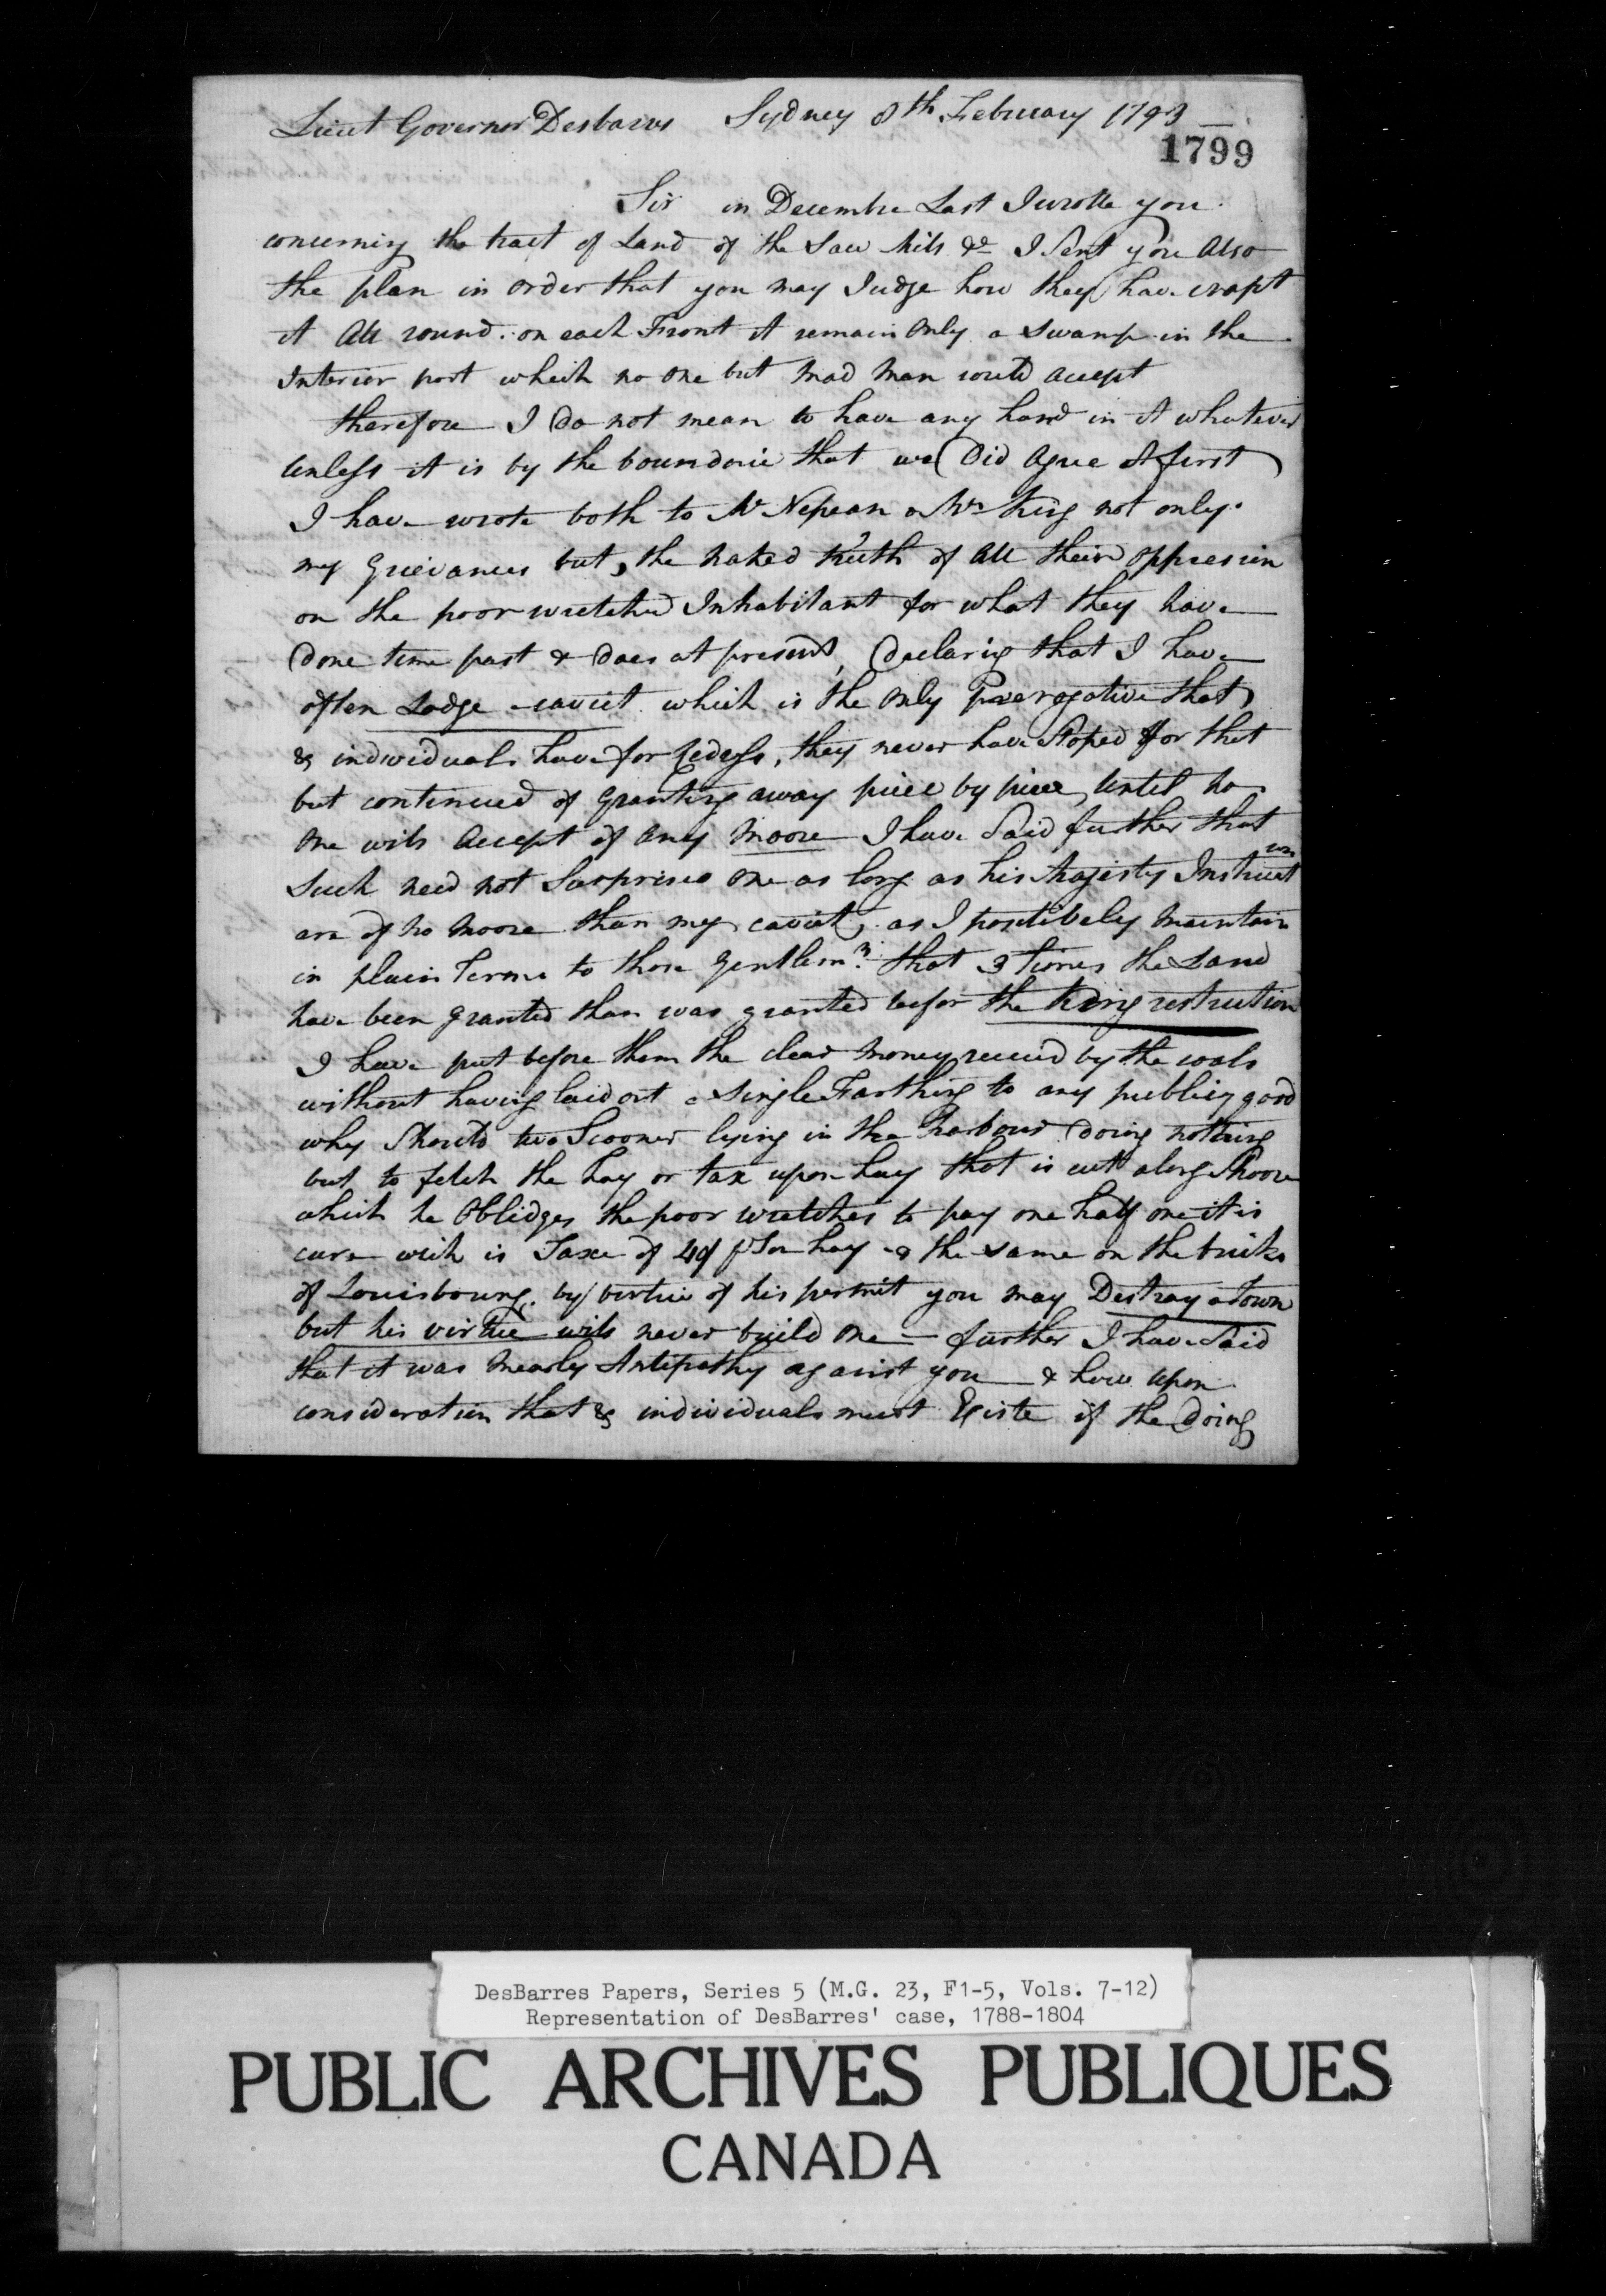 Lieut Governor Desbarres Sydney 8th February 1793
1799
Sir in Decembre Last I wrotte you
concerning the tract of Land of the Saw Mils &c I Sent you Also
the plan in order that you may Judge how they have wrapt
it All round. on each Front it remain Only a Swamp in the
Interior part which no one but Mad Man would accept
therefore I do not mean to have any hand in it whatever
Unless it is by the boundarie that we Did Agree At first
I have wrote both to Mr Nepean & Mr King not only
my Grievances but, the Naked truth of All their Oppression
on the poor wretched Inhabitant for what they have
done time past & does at present, Declaring that I have
often Lodge caviet which is the Only Prerogative that
individuals have for Redress, they never have Stoped for that
but continued of Granting away piece by piece Until no
One wils Accept of any Moore I have Said further that
Such need not Surprise One as long as his Majesty Instruct ion
are of No Moore than my caviet, as I positively Maintain
in plain Terms to those Gentlemn that 3 Times the Land
have been Granted than was granted befor the King restruction
I have put before them the clear Money received by the coals
without having laid out a Single Farthing to any publicq good
why Should two Scooner lying in the Harbour doing nothing
but to fetch the hay or tax upon hay that is cutt along Shoore
which he Obledges the poor wretches to pay one half one it is
wich is Taxe of hay & the same on the briks
of Louisbourg. by virtue of his permit you may Destray a Town
but his virtue wils never build One — further I have Said
that it was Mearly Antipathy against you & how Upon
consideration that individuals must Existe if the Doing
DesBarres Papers, Series 5 (M.G. 23, F1-5, Vols. 7-12)
Representation of DesBarres' case, 1788-1804
PUBLIC ARCHIVES PUBLIQUES
CANADA